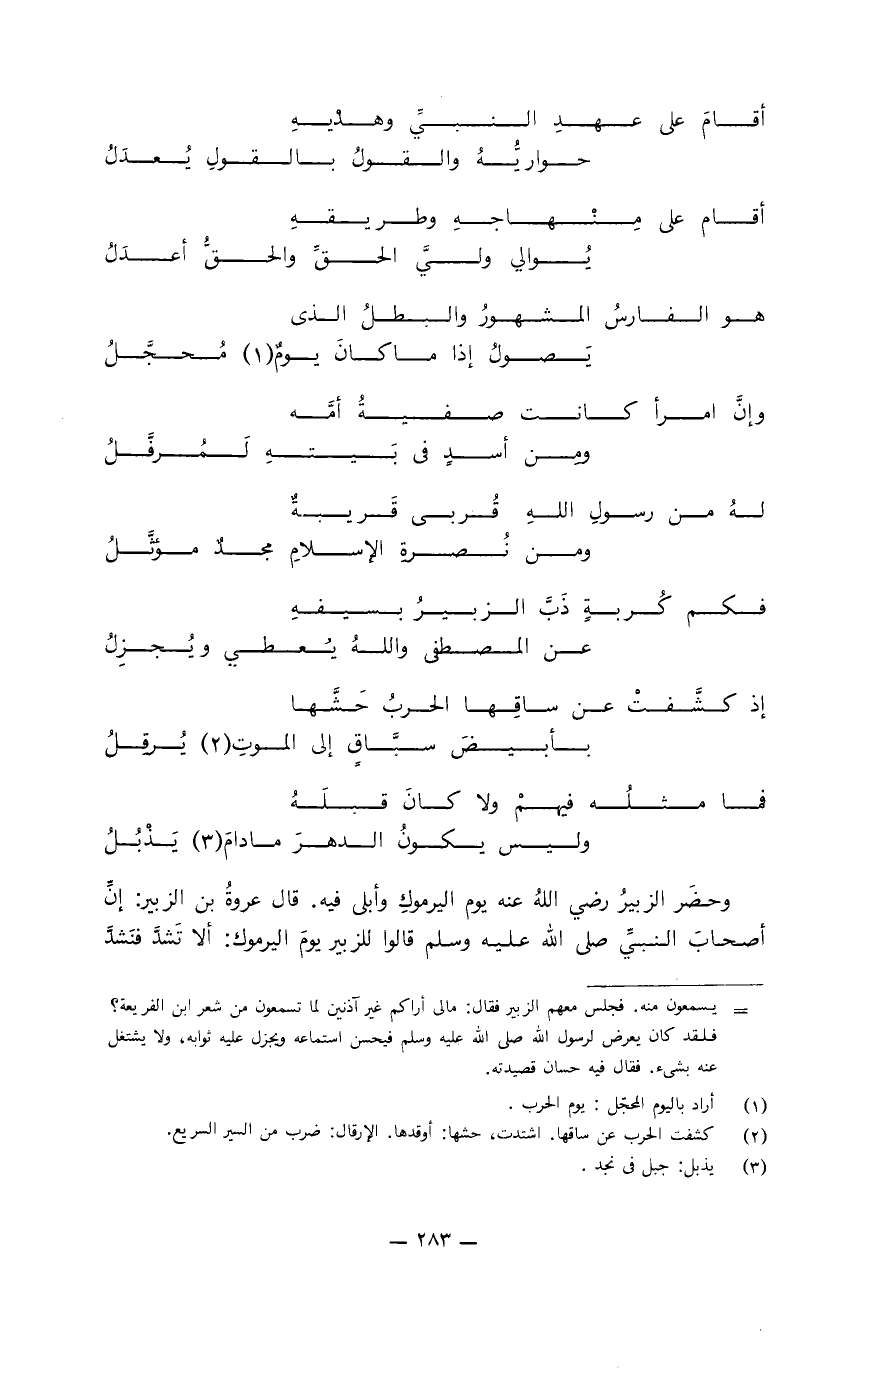 أقامَ على عهدِ النبيِّ وهديهِ
حواريُّهُ والقولُ بالقولِ يُعدَلُ
أقام على مِنْهاجهِ وطريقهِ
يُوالي وليَّ الحقِّ والحقُّ أعدَلُ
هو الفارسُ المشهورُ والبطلُ الذى
يَصولُ إذا ماكانَ يومٌ(١) مُحجَّلُ
وإنَّ امرأ كانت صفيةُ أمَّه
ومِن أسدٍ فى بَيتهِ لَمُرفَّلُ
لهُ من رسولِ اللهِ قُربى قَريبةٌ
ومن نُصرةِ الإسلامِ مجدٌ موثَّلُ
فكم كُربةٍ ذَبَّ الزبيرُ بسيفهِ
عن المصطفى واللهُ يُعطي ويُجزِلُ
إذ كشَّفتْ عن ساقِها الحربُ حَشَّها
بأبيضَ سبَّاقٍ إلى الموتِ(٢) يُرقِلُ
فما مثلُه فيهمْ ولا كانَ قبلَهُ
وليس يكونُ الدهرَ مادامَ(٣) يَذْبُلُ
وحضَر الزبيرُ رضي اللهُ عنه يوم اليرموكِ وأبلى فيه. قال عروةُ بن الزبير: إنَّ
أصحابَ النبيِّ صلى الله عليه وسلم قالوا للزبير يومَ اليرموك: ألا تَشدَّ فنَشدَّ
= يسمعون منه. فجلس معهم الزبير فقال: مالى أراكم غير آذنين لما تسمعون من شعر ابن الفريعة؟
فلقد كان يعرض لرسول الله صلى الله عليه وسلم فيحسن استماعه ويجزل عليه ثوابه، ولا يشتغل
عنه بشىء. فقال فيه حسان قصيدته.
(١) أراد باليوم المحجّل : يوم الحرب .
(٢) كشفت الحرب عن ساقها. اشتدت، حشها: أوقدها. الإرقال: ضرب من السير السريع.
(٣) يذبل: جبل فى نجد .
— ٢٨٣ —